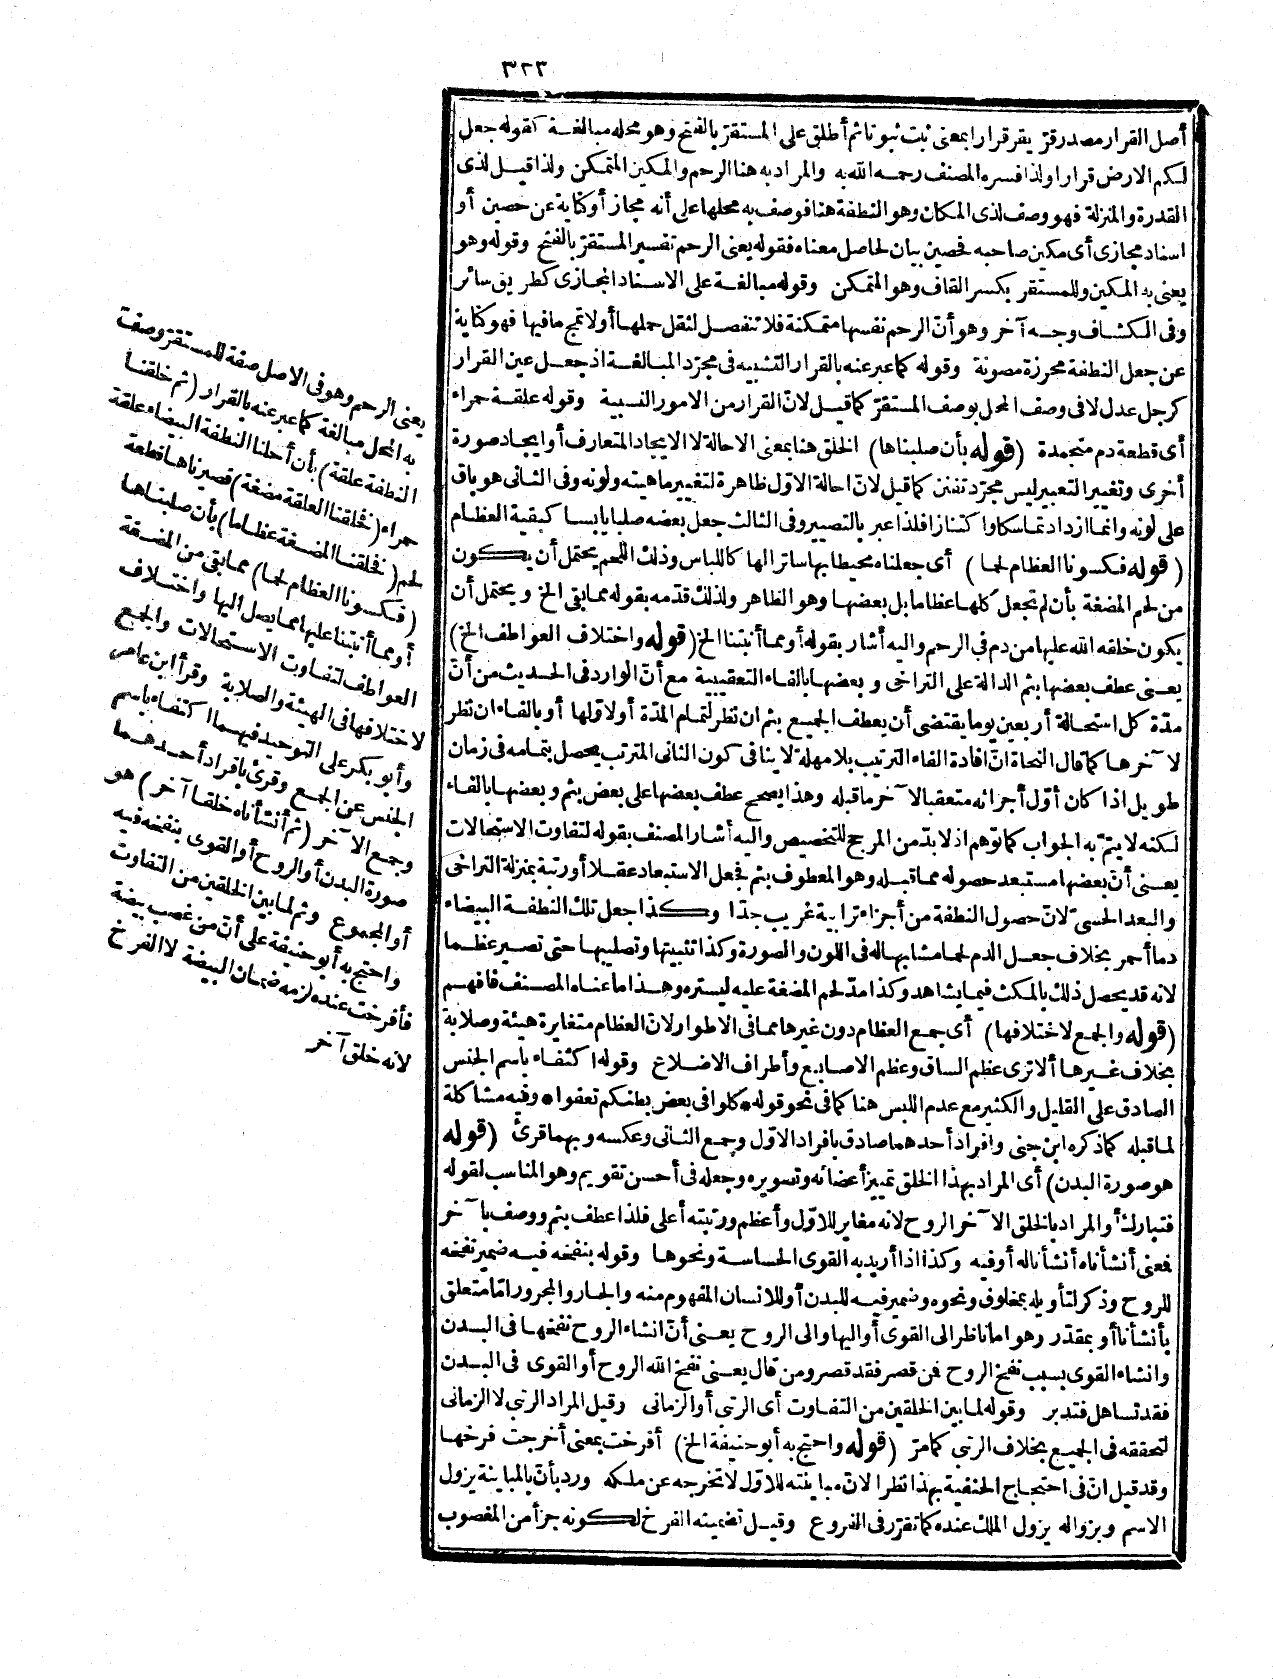 ٣٢٣
أصل القرار مصدر قرّ يقر قرارا بمعنى ثبت ثبوتا ثم أطلق على المستقرّ بالفتح وهو محله مبالغة كقوله جعل
لكم الارض قرارا ولذا فسره المصنف رحمه الله به والمراد به هنا الرحم والمكين المتمكن ولذا قيل لذى
القدرة والمنزلة فهو وصف لذى المكان وهو النطفة هنا فوصف به محلها على أنه مجاز أو كناية عن حصين أو
اسناد مجازى أى مكين صاحبه فحصين بيان لحاصل معناه فقوله يعنى الرحم تفسير المستقرّ بالفتح وقوله وهو
يعنى به المكين وللمستقر بكسر القاف وهو المتمكن وقوله مبالغة على الاسناد المجازى كطريق سائر
وفى الكشاف وجه آخر وهو أنّ الرحم نفسها متمكنة فلا تنفصل لثقل حملها أو لا تمج مافيها فهو كناية
عن جعل النطفة محرزة مصونة وقوله كما عبر عنه بالقرار التشبيه فى مجرّد المبالغة اذ جعل عين القرار
كرجل عدل لا فى وصف المحل بوصف المستقرّ كما قيل لانّ القرار من الامور النسبية وقوله علقة حمراء
أى قطعة دم متجمدة (قوله بأن صلبناها) الخلق هنا بمعنى الاحالة لا الايجاد المتعارف أو ايجاد صورة
أخرى وتغيير التعبير ليس مجرّد تفنن كما قيل لانّ احالة الاوّل ظاهرة لتغيير ماهيته ولونه وفى الثانى هو باق
على لونه وانما ازداد تماسكا واكتنازا فلذا عبر بالتصيير وفى الثالث جعل بعضه صلبا يابسا كبقية العظام
(قوله فكسونا العظام لحما) أى جعلناه محيطا بها ساترا لها كاللباس وذلك اللحم يحتمل أن يكون
من لحم المضغة بأن لم تجعل كلها عظاما بل بعضها وهو الظاهر ولذلك قدّمه بقوله مما بقى الخ ويحتمل أن
يكون خلقه الله عليها من دم فى الرحم واليه أشار بقوله أو مما أنبتنا الخ (قوله واختلاف العواطف الخ)
يعنى عطف بعضها بثم الدالة على التراخى وبعضها بالفاء التعقيبية مع أنّ الوارد فى الحديث من أنّ
مدّة كل استحالة أربعين يوما يقتضى أن يعطف الجميع بثم ان نظر لتمام المدّة أو لاوّلها أو بالفاء ان نظر
لآخرها كما قال النحاة انّ افادة الفاء الترتيب بلا مهلة لا ينافى كون الثانى المترتب يحصل بتمامه فى زمان
طويل اذا كان أوّل أجزائه متعقبا لآخر ما قبله وهذا يصحح عطف بعضها على بعض بثم وبعضها بالفاء
لكنه لا يتمّ به الجواب كما توهم اذ لا بدّ من المرجح للتخصيص واليه أشار المصنف بقوله لتفاوت الاستحالات
يعنى أنّ بعضها مستبعد حصوله مما قبله وهو المعطوف بثم فجعل الاستبعاد عقلا أو رتبة بمنزلة التراخى
والبعد الحسىّ لانّ حصول النطفة من أجزاء ترابية غريب جدّا وكذا جعل تلك النطفة البيضاء
دما أحمر بخلاف جعل الدم لحما مشابها له فى اللون والصورة وكذا تثبيتها وتصليبها حتى تصير عظما
لانه قد يحصل ذلك بالمكث فيما يشاهد وكذا مدّ لحم المضغة عليه ليستره وهذا ما عناه المصنف فافهم
(قوله والجمع لاختلافها) أى جمع العظام دون غيرها مما فى الاطوار لانّ العظام متغايرة هيئة وصلابة
بخلاف غيرها ألا ترى عظم الساق وعظم الاصابع وأطراف الاضلاع وقوله اكتفاء باسم الجنس
الصادق على القليل والكثير مع عدم اللبس هنا كما فى نحو قوله * كلوا فى بعض بطنكم تعفوا * وفيه مشاكلة
لما قبله كما ذكره ابن جنى وافراد أحدهما صادق بافراد الاوّل وجمع الثانى وعكسه وبهما قرئ (قوله
هو صورة البدن) أى المراد بهذا الخلق تمييز أعضائه وتصويره وجعله فى أحسن تقويم وهو المناسب لقوله
فتبارك أو المراد بالخلق الآخر الروح لانه مغاير للاوّل وأعظم ورتبته أعلى فلذا عطف بثم ووصف بآخر
فمعنى أنشأناه أنشأناله أو فيه وكذا اذا أريد به القوى الحساسة ونحوها وقوله بنفخه فيه ضمير نفخه
للروح وذكر لتأويله بمخلوق ونحوه وضمير فيه للبدن أو للانسان المفهوم منه والجار والمجرور امّا متعلق
بأنشأنا أو بمقدّر وهو اما ناظر الى القوى أو اليها والى الروح يعنى أنّ انشاء الروح نفخها فى البدن
وانشاء القوى بسبب نفخ الروح فمن قصر فقد قصر ومن قال يعنى نفخ الله الروح أو القوى فى البدن
فقد تساهل فتدبر وقوله لما بين الخلقين من التفاوت أى الرتبى أو الزمانى وقيل المراد الرتبى لا الزمانى
لتحققه فى الجميع بخلاف الرتبى كما مرّ (قوله واحتج به أبو حنيفة الخ) أفرخت بمعنى أخرجت فرخها
وقد قيل انّ فى احتجاج الحنفية بهذا نظرا لانّ مباينته للاوّل لا تخرجه عن ملكه وردّ بأنّ بالمباينة يزول
الاسم وبزواله يزول الملك عنده كما تقرّر فى الفروع وقيل تضمينه الفرخ لكونه جزأ من المغصوب
يعنى الرحم وهو فى الاصل صفة للمستقرّ وصف
به المحل مبالغة كما عبر عنه بالقرار (ثم خلقنا
النطفة علقة) بأن أحلنا النطفة البيضاء علقة
حمراء (فخلقنا العلقة مضغة) فصيرناها قطعة
لحم (فخلقنا المضغة عظاما) بأن صلبناها
(فكسونا العظام لحما) مما بقى من المضغة
أو مما أنبتنا عليها مما يصل اليها واختلاف
العواطف لتفاوت الاستحالات والجمع
لاختلافها فى الهيئة والصلابة وقرأ ابن عامر
وأبو بكر على التوحيد فيهما اكتفاء باسم
الجنس عن الجمع وقرئ بافراد أحدهما
وجمع الآخر (ثم أنشأناه خلقا آخر) هو
صورة البدن أو الروح أو القوى بنفخه فيه
أو المجموع وثم لما بين الخلقين من التفاوت
واحتج به أبو حنيفة على أنّ من غصب بيضة
فأفرخت عنده لزمه ضمان البيضة لا الفرخ
لانه خلق آخر